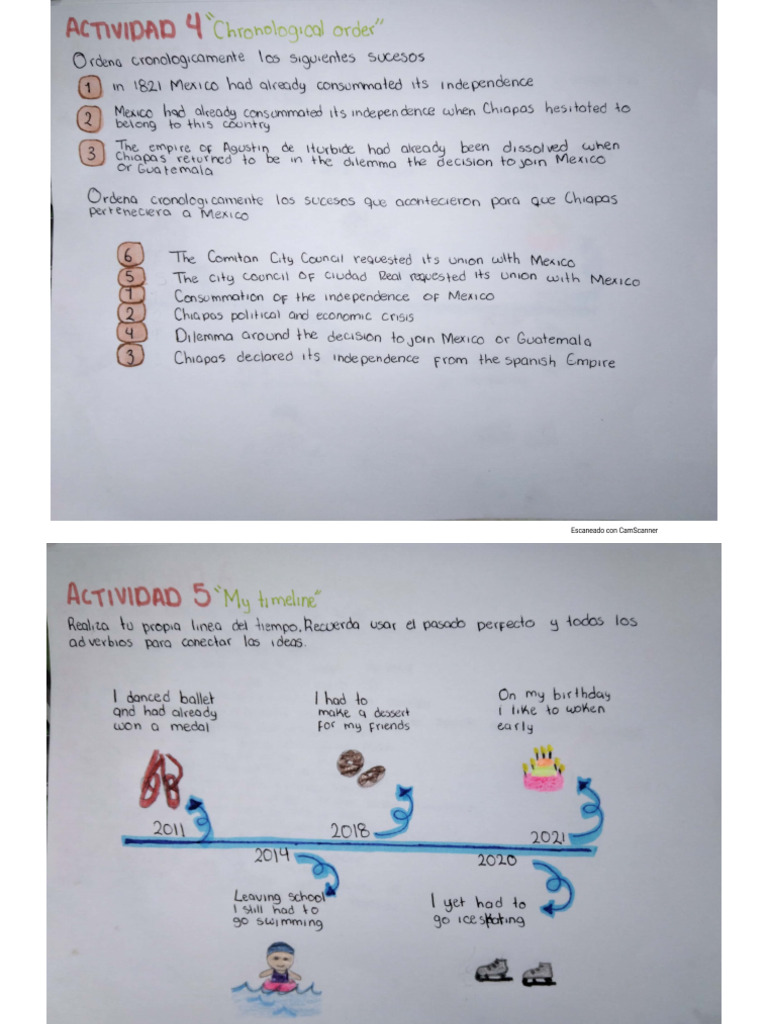 ACTIVIDAD 4 "Chronological order"
Ordena cronologicamente los siguientes sucesos
1 in 1821 Mexico had already consummated its independence
2 Mexico had already consummated its independence when Chiapas hesitated to
belong to this country
3 The empire of Agustin de Iturbide had already been dissolved when
Chiapas returned to be in the dilemma the decision to join Mexico
or Guatemala
Ordena cronologicamente los sucesos que acontecieron para que Chiapas
perteneciera a Mexico
6 The Comitan City Council requested its union with Mexico
5 The city council of ciudad Real requested its union with Mexico
1 Consummation of the independence of Mexico
2 Chiapas political and economic crisis
4 Dilemma around the decision to join Mexico or Guatemala
3 Chiapas declared its independence from the spanish Empire
Escaneado con CamScanner
ACTIVIDAD 5 "My timeline"
Realiza tu propia linea del tiempo. Recuerda usar el pasado perfecto y todos los
adverbios para conectar las ideas.
I danced ballet
and had already
won a medal
I had to
make a dessert
for my friends
On my birthday
I like to woken
early
2011
2018
2021
2014
2020
Leaving school
I still had to
go swimming
I yet had to
go ice skating